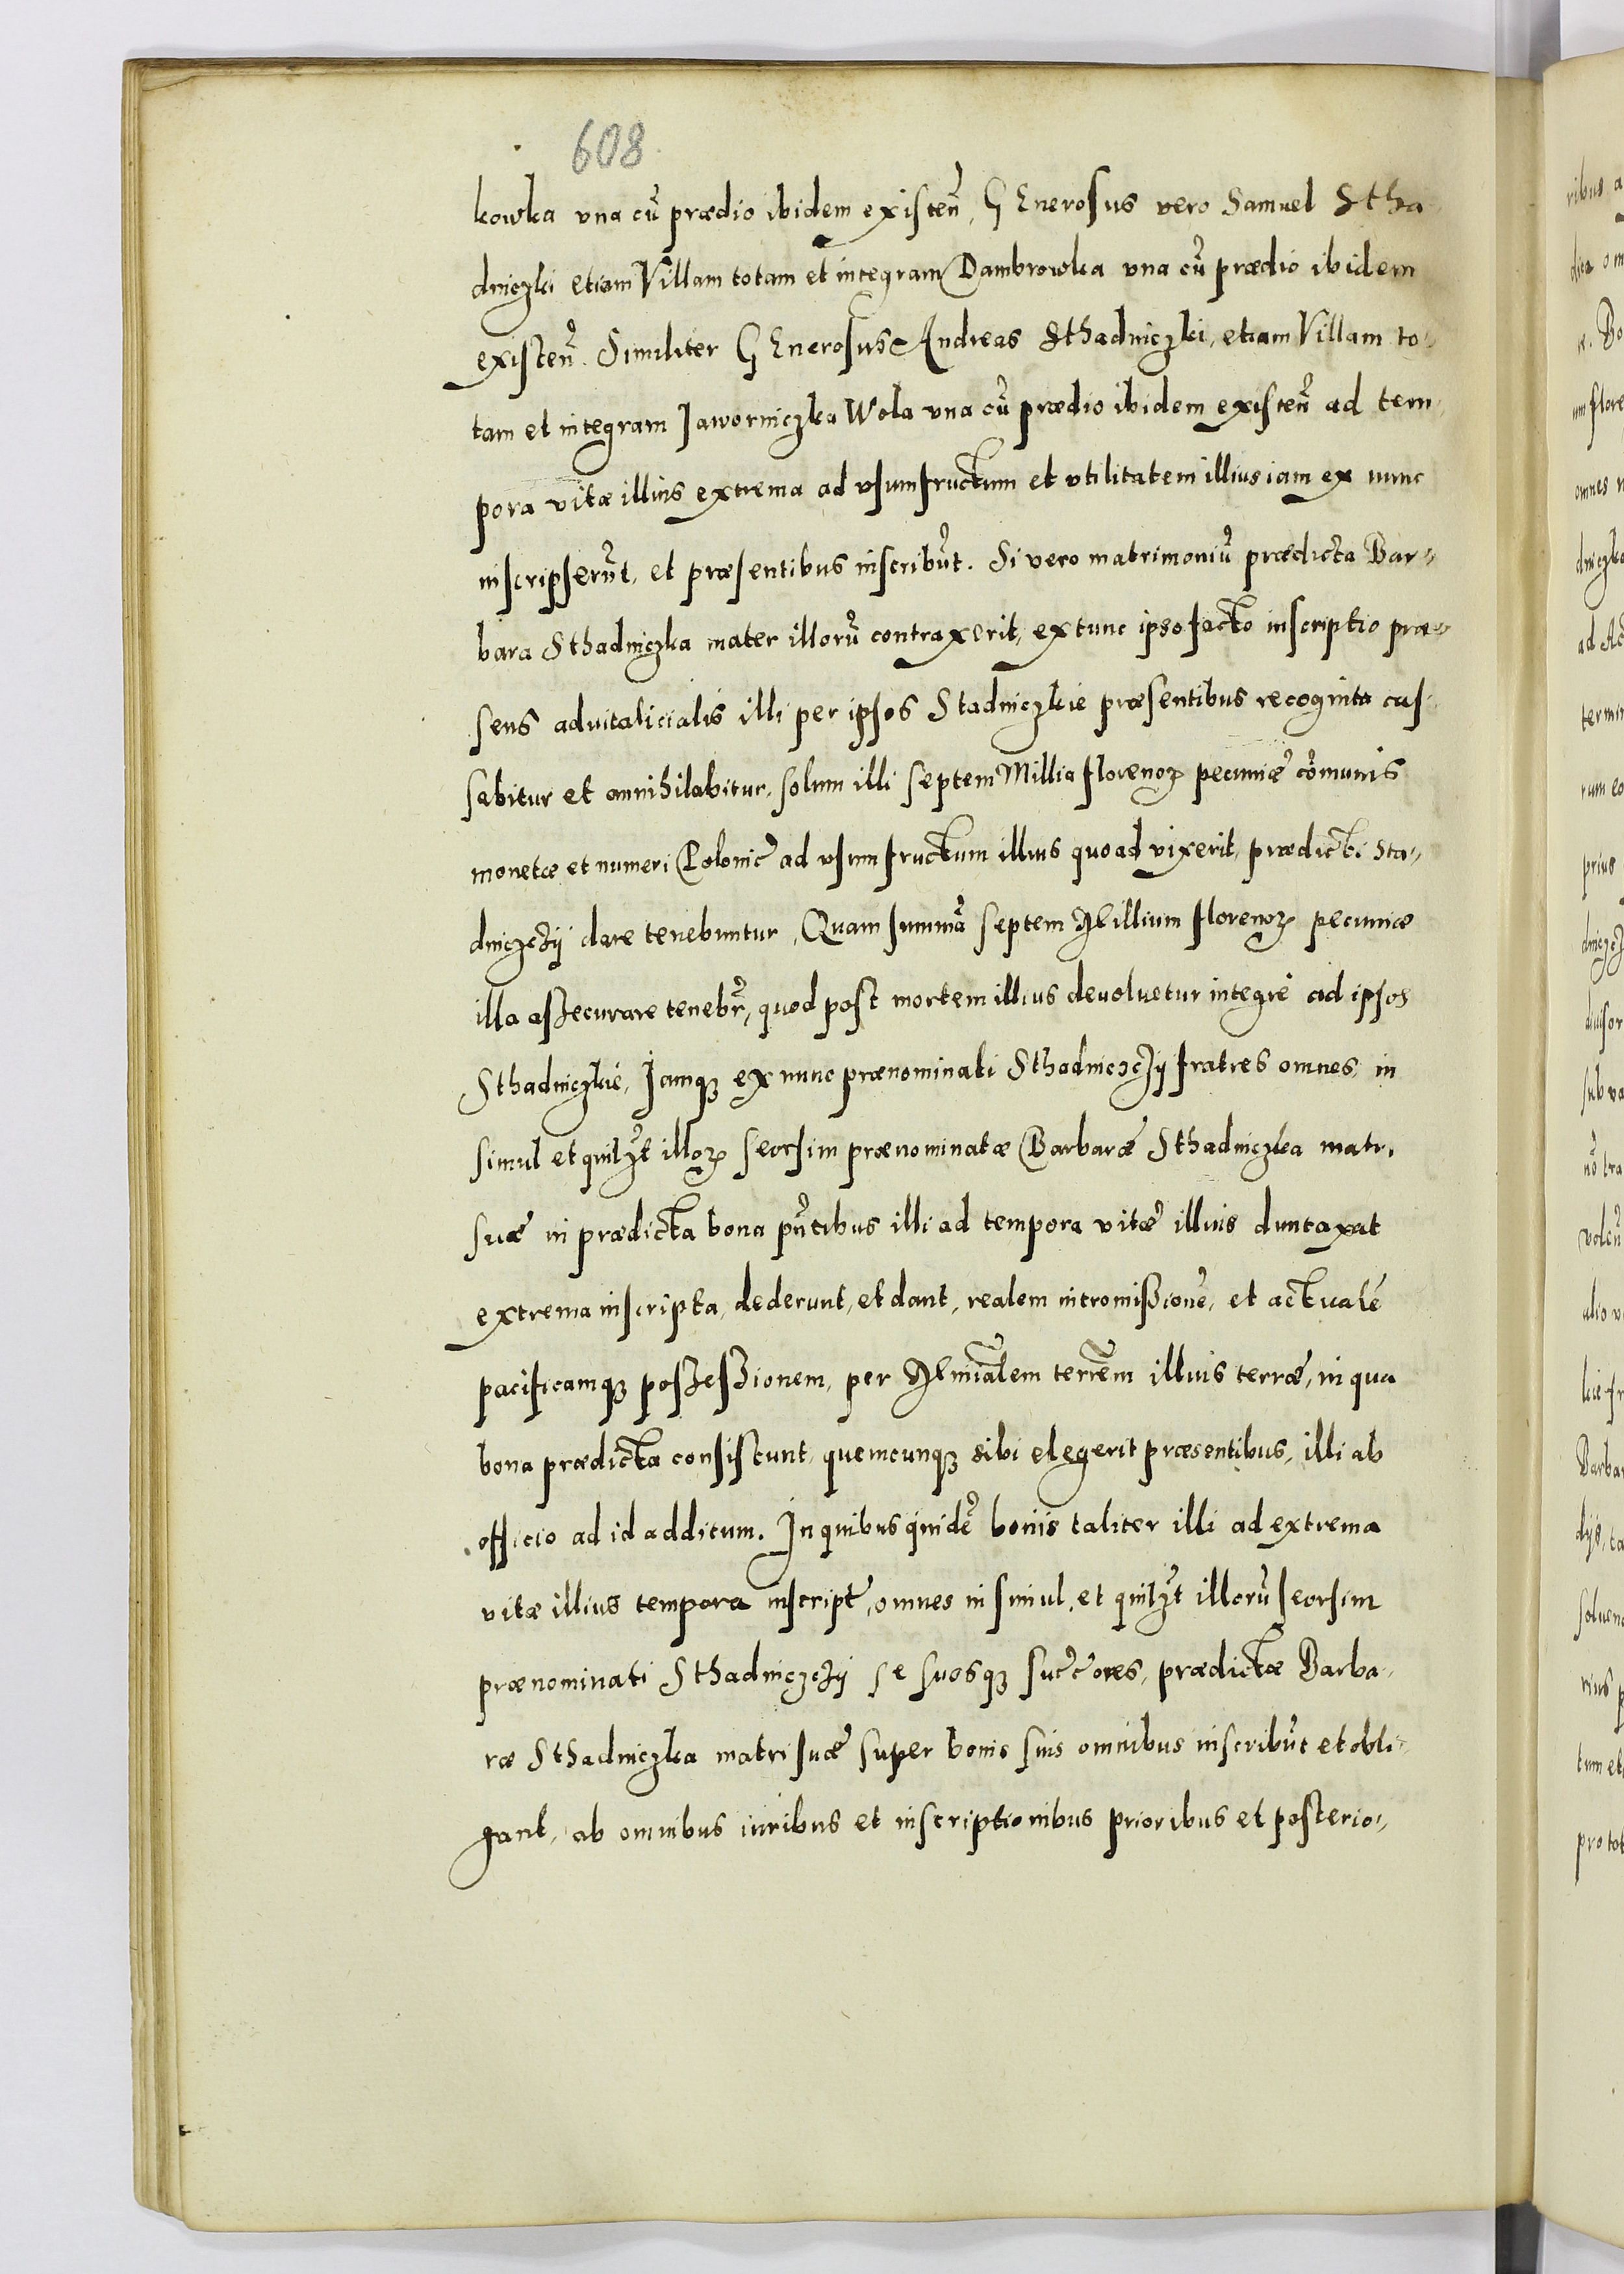 608
kowka vna cũ prædio ibidem existeñ, GEnerosus vero Samuel Stha
dniczki etiam Villam totam et integram Dambrowka vna cũ prædio ibidem
existeñ. Similiter GEnerosus Andreas Sthadniczki, etiam Villam to-
tam et integram Jaworniczka Wola vna cũ prædio ibidem existeñ ad tem-
pora vitæ illius extrema ad vsumfructum et vtilitatem illius iam ex nunc
inscripserũt, et præsentibus inscribũt. Si vero matrimoniũ prædicta Bar-
bara Sthadniczka mater illorũ contraxerit, extunc ipso facto inscriptio præ-
sens aduitalicialis illi per ipsos Stadniczkie præsentibus recognita cas-
sabitur et annihilabitur, solum illi septem Millia florenoꝝ pecuniæ cõmunis
monetæ et numeri Polonic̃ ad vsumfructum illius quoad vixerit, prædicti Sta-
dniczcÿ dare tenebuntur, Quam summã septem Millium florenoꝝ pecuniæ
illa assecurare tenebr̃, quod post mortem illius deuoluetur integrè ad ipsos
Sthadniczkie, Jamqꝫ ex nunc prænominati Sthadniczcÿ fratres omnes in
simul et quilꝫt illoꝝ seorsim prænominatæ Barbaræ Sthadniczka matri
suæ in prædicta bona pñtibus illi ad tempora vitæ illius duntaxat
extrema inscripta, dederunt, et dant, realem intromißionẽ, et actualẽ
pacificamqꝫ possessionem, per Miniãlem terrẽm illius terræ, in qua
bona prædicta consistunt, quemcunqꝫ sibi elegerit præsentibus, illi ab
officio ad id additum. In quibus quidẽ bonis taliter illi ad extrema
vitæ illius tempora inscript̃, omnes in simul, et quilꝫt illorũ seorsim
prænominati Sthadniczcÿ se suosqꝫ succ̃ores, prædictæ Barba-
ræ Sthadniczka matri suæ super bonis suis omnibus inscribũt et obli-
gant, ab omnibus iuribus et inscriptionibus prioribus et posterio-